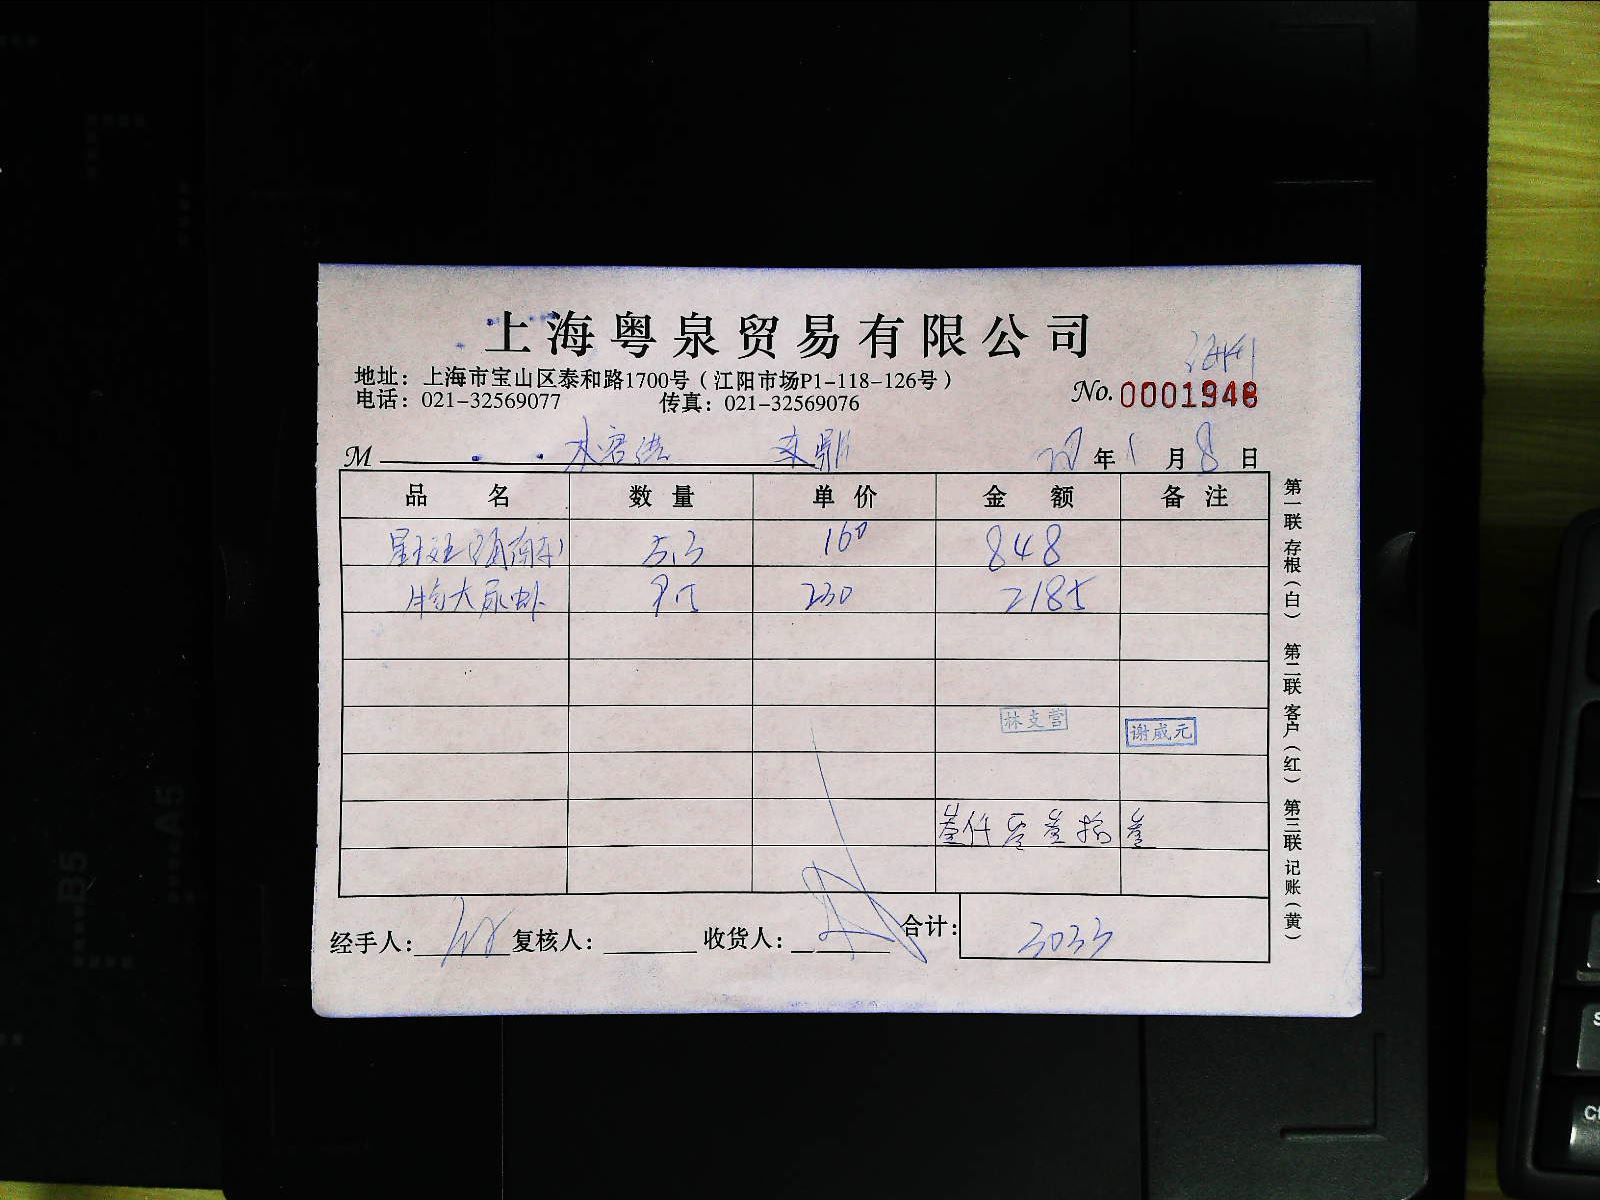 上海粤泉贸易有限公司
地址：上海市宝山区泰和路1700号（江阳市场P1-118-126号）
电话：021-32569077 传真：021-32569076
No. 0001948
M 年 1 月 8 日
品名 数量 单价 金额 备注
星斑 5.3 160 848
大尿虾 9.5 230 2185
林支营
谢威元
叁仟零叁拾叁
经手人： 复核人： 收货人： 合计： 3033
第一联 存根（白） 第二联 客户（红） 第三联 记账（黄）
B5
A5